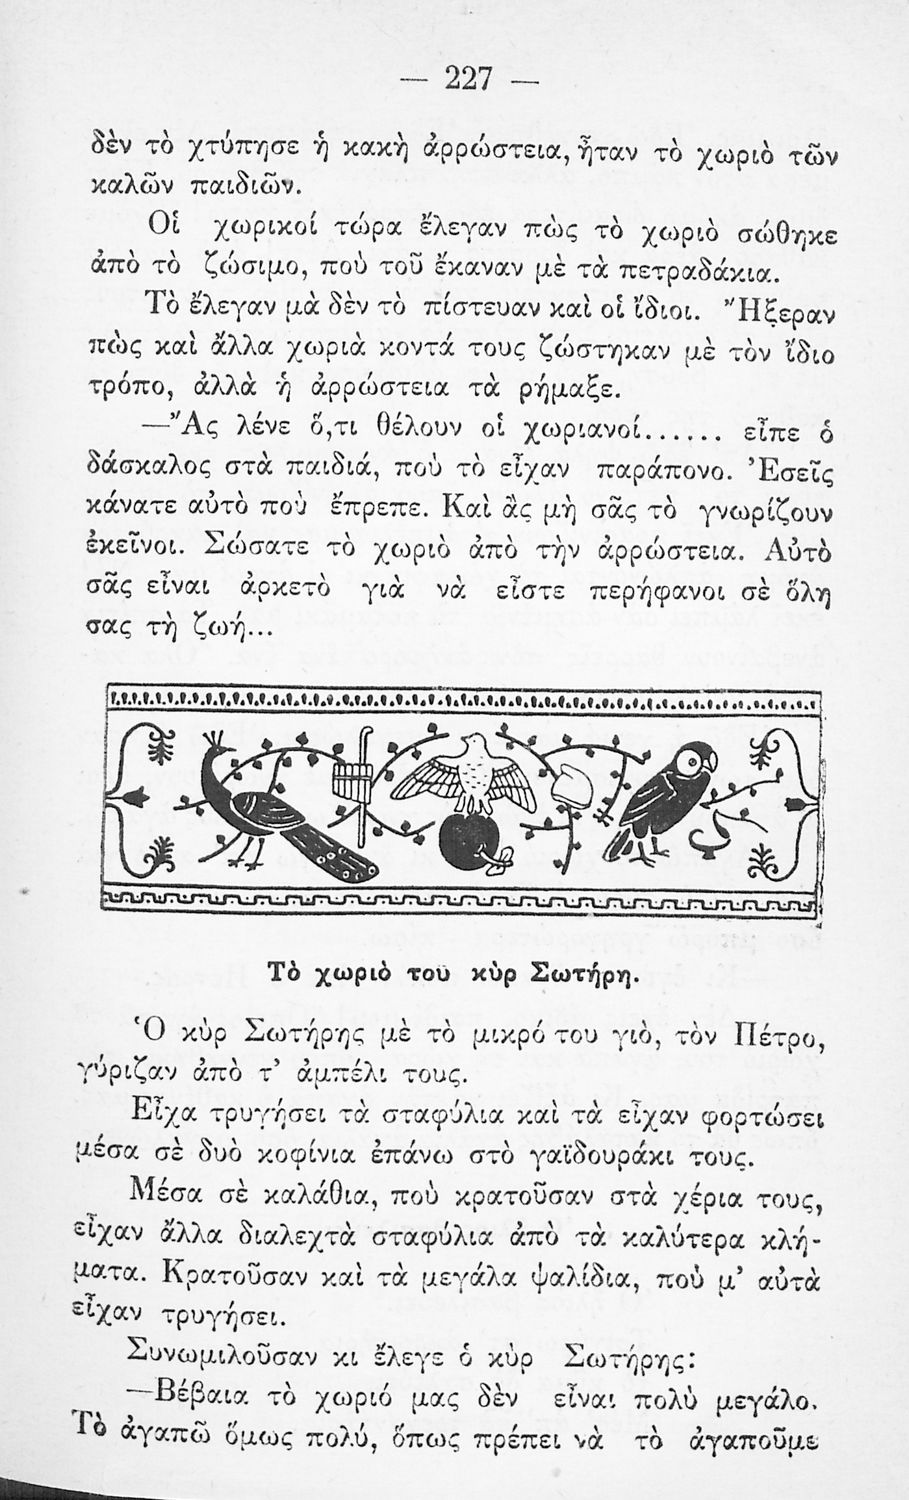 — 227 —
δὲν τὸ χτύπησε ἡ κακὴ ἀρρώστεια, ἦταν τὸ χωριὸ τῶν
καλῶν παιδιῶν.
Οἱ χωρικοί τώρα ἔλεγαν πὼς τὸ χωριὸ σώθηκε
ἀπὸ τὸ ζώσιμο, ποὺ τοῦ ἔκαναν μὲ τὰ πετραδάκια.
Τὸ ἔλεγαν μὰ δὲν τὸ πίστευαν καὶ οἱ ἴδιοι. Ἤξεραν
πὼς καὶ ἄλλα χωριὰ κοντά τους ζώστηκαν μὲ τὸν ἴδιο
τρόπο, ἀλλὰ ἡ ἀρρώστεια τὰ ρήμαξε.
—Ἄς λένε ὅ,τι θέλουν οἱ χωριανοί...... εἶπε ὁ
δάσκαλος στὰ παιδιά, ποὺ τὸ εἶχαν παράπονο. Ἐσεῖς
κάνατε αὐτὸ ποὺ ἔπρεπε. Καὶ ἂς μὴ σᾶς τὸ γνωρίζουν
ἐκεῖνοι. Σώσατε τὸ χωριὸ ἀπὸ τὴν ἀρρώστεια. Αὐτὸ
σᾶς εἶναι ἀρκετὸ γιὰ νὰ εἶστε περήφανοι σὲ ὅλη
σας τὴ ζωή...
Τὸ χωριὸ του κὺρ Σωτήρη.
Ὁ κὺρ Σωτήρης μὲ τὸ μικρό του γιὸ, τὸν Πέτρο,
γύριζαν ἀπὸ τ’ ἀμπέλι τους.
Εἶχα τρυγήσει τὰ σταφύλια καὶ τὰ εἶχαν φορτώσει
μέσα σὲ δυὸ κοφίνια ἐπάνω στὸ γαϊδουράκι τους.
Μέσα σὲ καλάθια, ποὺ κρατοῦσαν στὰ χέρια τους,
εἶχαν ἄλλα διαλεχτὰ σταφύλια ἀπὸ τὰ καλύτερα κλή-
ματα. Κρατοῦσαν καὶ τὰ μεγάλα ψαλίδια, ποὺ μ’ αὐτὰ
εἶχαν τρυγήσει.
Συνωμιλοῦσαν κι ἔλεγε ὁ κὺρ Σωτήρης:
—Βέβαια τὸ χωριό μας δὲν εἶναι πολὺ μεγάλο.
Τὸ ἀγαπῶ ὅμως πολύ, ὅπως πρέπει νὰ τὸ ἀγαποῦμε